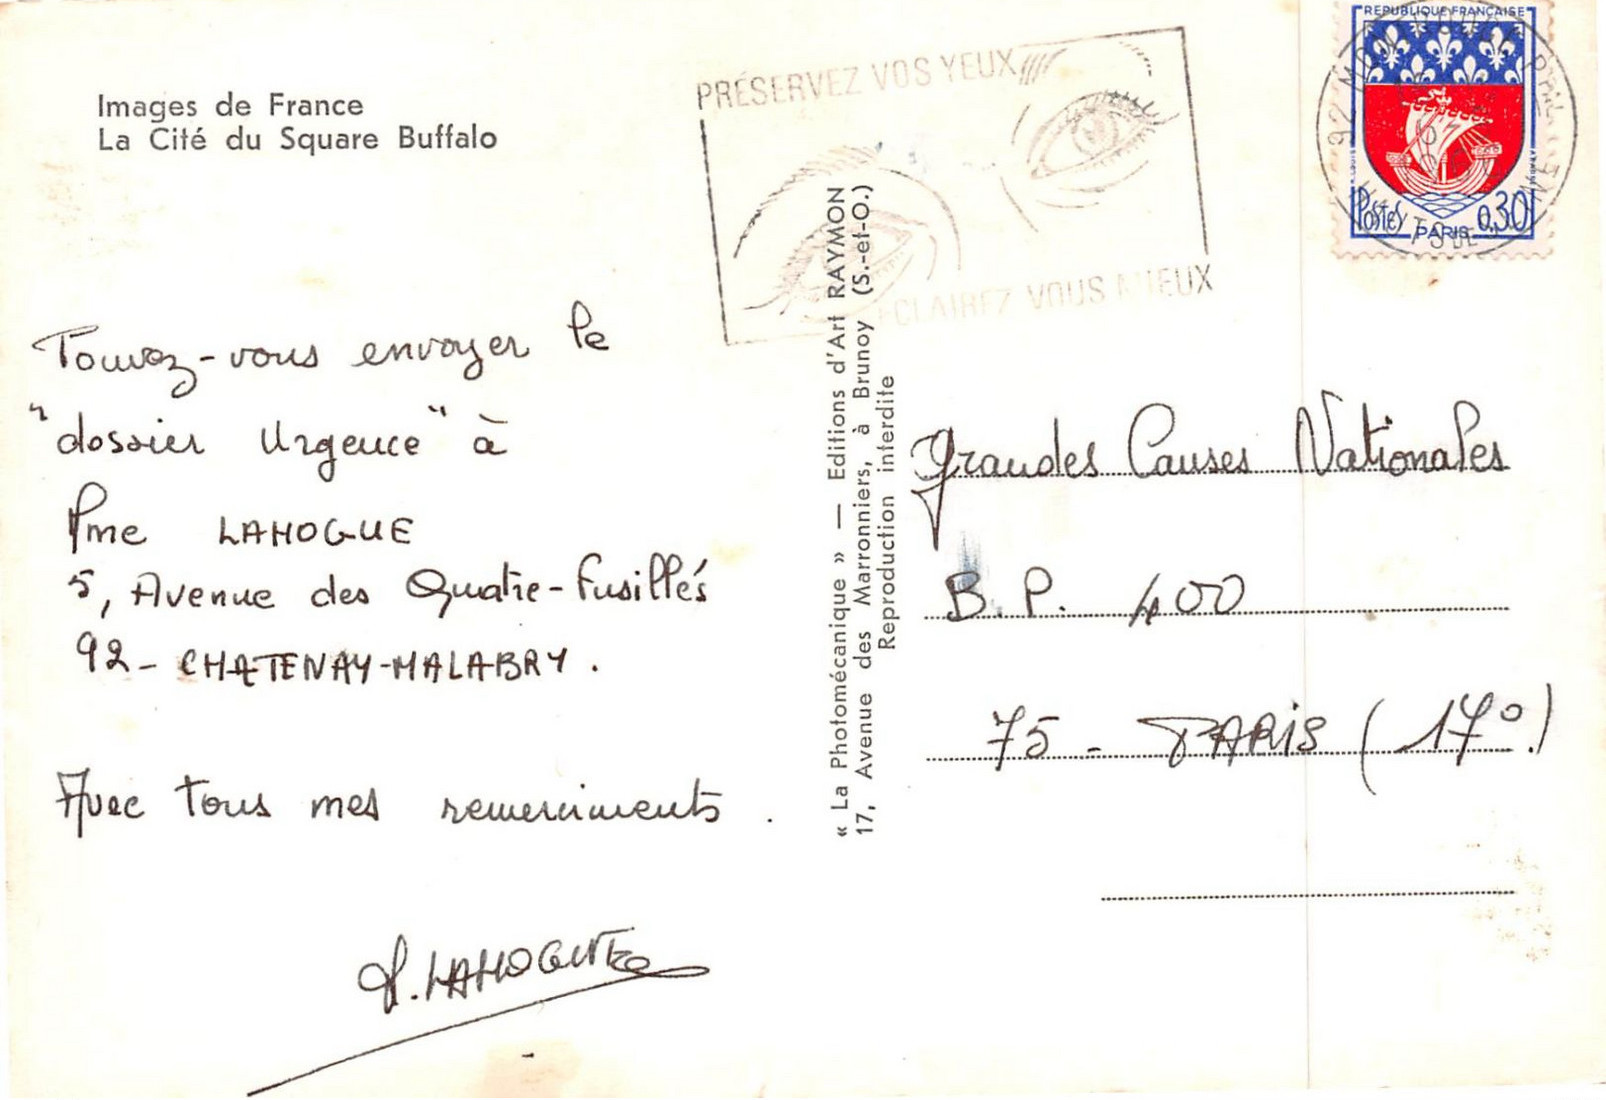 Images de France
La Cité du Square Buffalo
PRÉSERVEZ VOS YEUX
ECLAIREZ VOUS MIEUX
REPUBLIQUE FRANÇAISE
Postes
0,30
PARIS
Pouvez-vous envoyer le
"dossier Urgence" à
Mme LAHOGUE
5, Avenue des Quatre-Fusillés
92- CHATENAY-MALABRY.
Avec tous mes remerciments.
LAHOGUE
« La Photomécanique » — Editions d'Art RAYMON
17, Avenue des Marronniers, à Brunoy (S.-et-O.)
Reproduction interdite
Grandes Causes Nationales
B.P. 400
75 - PARIS (17°)